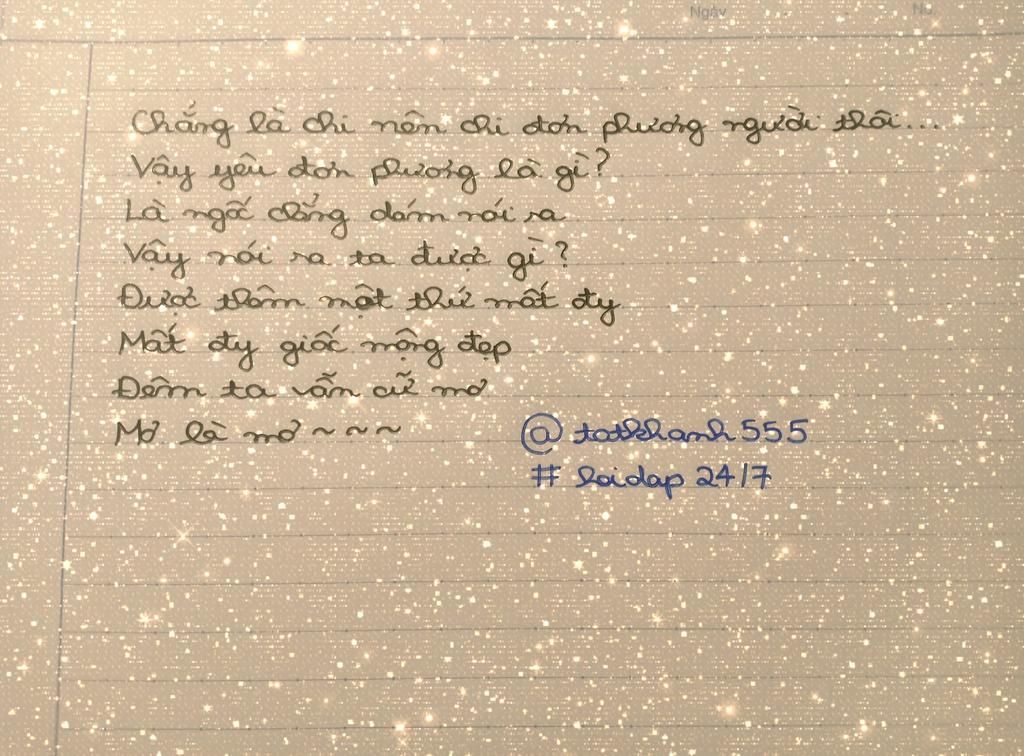 Ngày No.
Chẳng là chi nên chỉ đơn phương người thôi...
Vậy yêu đơn phương là gì?
Là ngốc chẳng dám nói ra
Vậy nói ra ta được gì?
Được thêm một thứ mất đy
Mất đy giấc mộng đẹp
Đêm ta vẫn cứ mơ
Mơ là mơ ~ ~ ~
@ tatkhanh555
# loidap 24/7